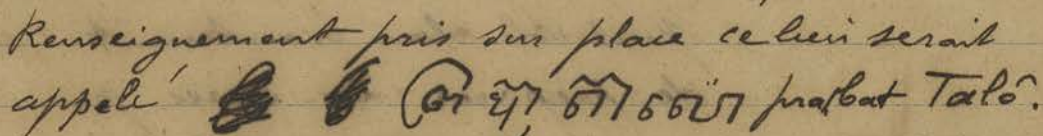 Renseignement pris sur place ce lieu serait
appelé prabat Talô.